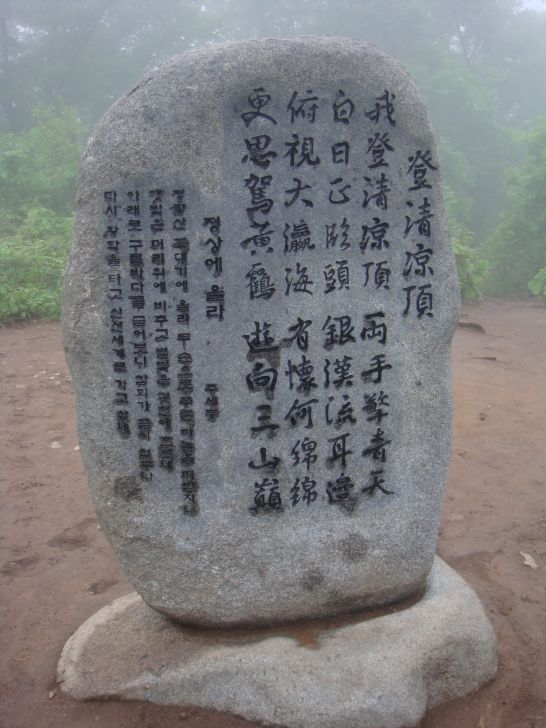 登清凉頂
我登清凉頂 兩手擎青天
白日正臨頭 銀漢流耳邊
俯視大瀛海 有懷何綿綿
更思駕黃鶴 遊向三山巓
정상에 올라 주세붕
청량산 꼭대기에 올라 두 손으로 푸른하늘을 떠받치니
햇빛은 머리위에 비추고 별빛은 귓전에 흐르네
아래로 구름바다를 굽어보니 감회가 끝이 없구나
다시 황학을 타고 신선세계로 가고 싶네